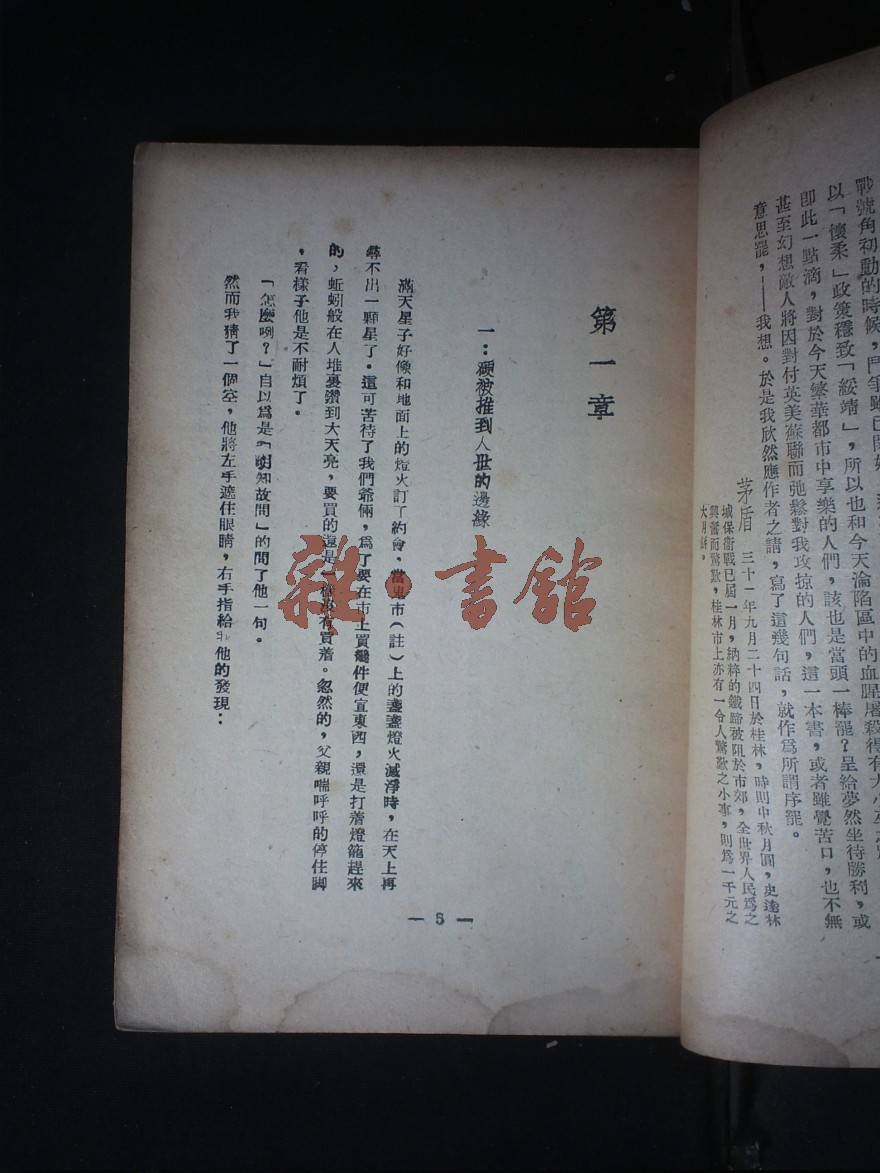 戰號角初動的時候，鬥爭雖已開始
以「懷柔」政策穩致「綏靖」，所以也和今天淪陷區中的血腥屠殺得有大小
即此一點滴，對於今天繁華都市中享樂的人們，該也是當頭一棒罷？呈給夢然坐待勝利，或
甚至幻想敵人將因對付英美蘇聯而弛鬆對我攻掠的人們，這一本書，或者雖覺苦口，也不無
意思罷，——我想。於是我欣然應作者之請，寫了這幾句話，就作爲所謂序罷。
茅盾 三十一年九月二十四日於桂林，時則中秋月圓，史達林
城保衛戰已屆一月，納粹的鐵蹄被阻於市郊，全世界人民爲之
興奮而驚歎，桂林市上亦有一令人驚歎之小事，則爲一千元之
大月餅。
第一章
一：硬被推到人世的邊緣
滿天星子好像和地面上的燈火訂了約會，當鬼市（註）上的盞盞燈火滅淨時，在天上再
尋不出一顆星了。這可苦待了我們爺倆，爲了要在市上買幾件便宜東西，還是打着燈籠趕來
的，蚯蚓般在人堆裏鑽到大天亮，要買的還是一件沒有買着。忽然的，父親喘呼呼的停住脚
，看樣子他是不耐煩了。
「怎麼咧？」自以爲是「明知故問」的問了他一句。
然而我猜了一個空，他將左手遮住眼睛，右手指給我他的發現：
— 5 —
雜·書館